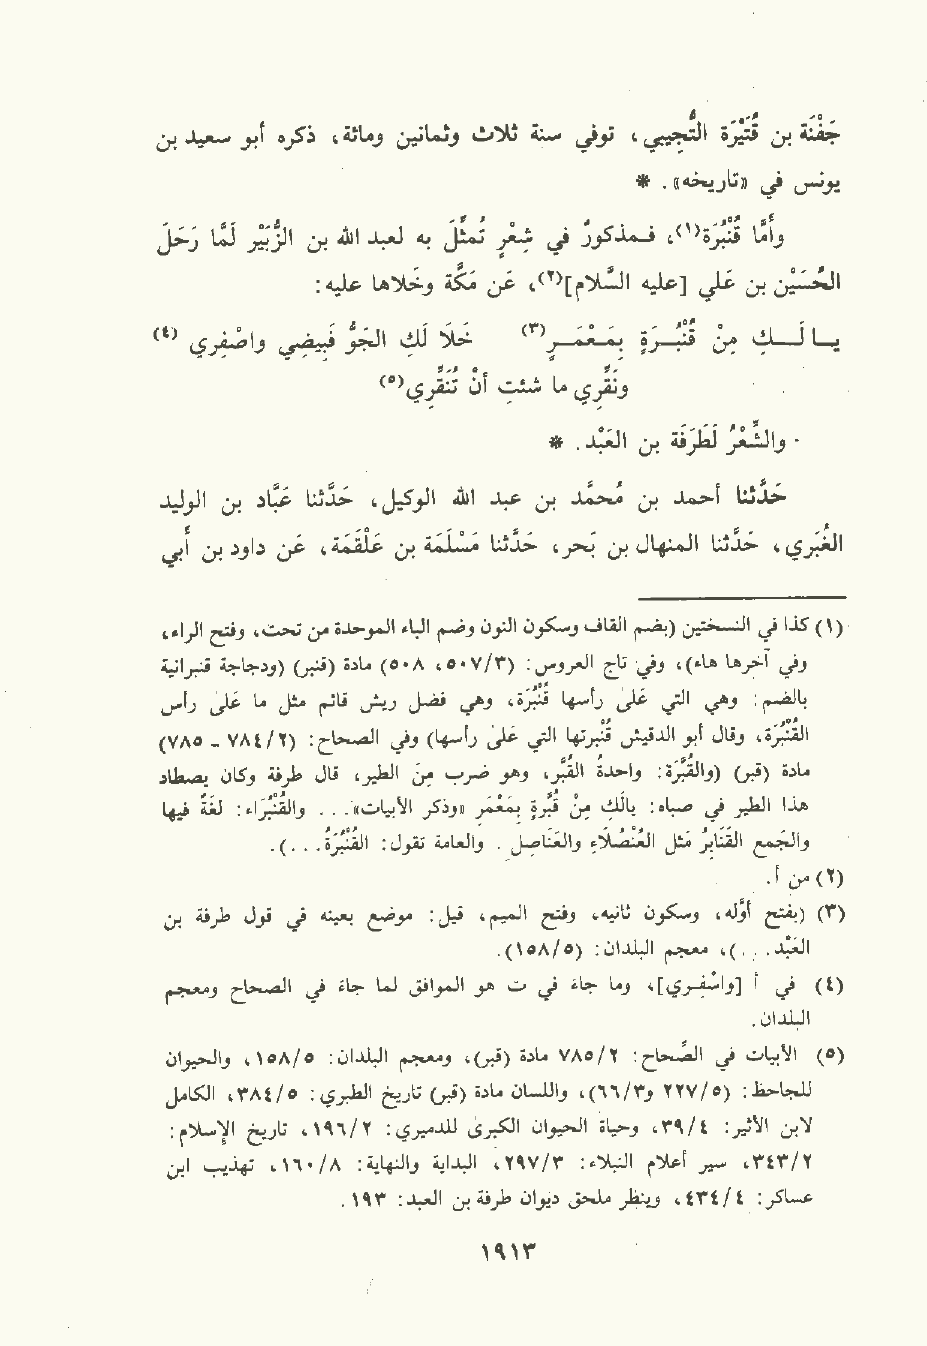 جَفْنَة بن قُتَيْرَة التُّجِيبي، توفي سنة ثلاث وثمانين ومائة، ذكره أبو سعيد بن
يونس في «تاريخه». *
وأمَّا قُنْبُرَة(١)، فـمذكورٌ في شِعْرٍ تُمثِّلَ به لعبد الله بن الزُّبَيْر لَمَّا رَحَلَ
الحُسَيْن بن عَلي [عليه السَّلام](٢)، عَن مَكَّة وخَلاها عليه:
يـــا لَـــكِ مِنْ قُنْبُـــرَةٍ بِـمَـعْـمَـــرِ(٣) خَلَا لَكِ الجَوُّ فَبِيضي واصْفِري(٤)
ونَقِّري ما شئتِ أنْ تُنَقِّري(٥)
والشِّعْرُ لَطَرَفَة بن العَبْد. *
حَدَّثنا أحمد بن مُحمَّد بن عبد الله الوكيل، حَدَّثنا عَبَّاد بن الوليد
الغُبَري، حَدَّثنا المنهال بن بَحر، حَدَّثنا مَسْلَمَة بن عَلْقَمَة، عَن داود بن أَبي
(١) كذا في النسختين (بضم القاف وسكون النون وضم الباء الموحدة من تحت، وفتح الراء،
وفي آخرها هاء)، وفي تاج العروس: (٥٠٧/٣، ٥٠٨) مادة (قنبر) (ودجاجة قنبرانية
بالضم: وهي التي عَلىٰ رأسها قُنْبُرَة، وهي فضل ريش قائم مثل ما عَلىٰ رأس
القُنْبُرَة، وقال أبو الدقيش قُنْبرتها التي عَلىٰ رأسها) وفي الصحاح: (٧٨٤/٢ ـ ٧٨٥)
مادة (قبر) (والقُبَّرَة: واحدة القُبَّر، وهو ضرب مِنَ الطير، قال طرفة وكان يصطاد
هذا الطير في صباه: يالَكِ مِنْ قُبَّرةٍ بِمَعْمَرِ «وذكر الأبيات»... والقُنْبُرَاء: لغَةٌ فيها
والجَمع القَنَابرُ مَثل العُنْصُلَاءِ والعَنَاصِل. والعامة تقول: القُنْبُرَةُ...).
(٢) من أ.
(٣) (بفتح أوَّله، وسكون ثانيه، وفتح الميم، قيل: موضع بعينه في قول طرفة بن
العَبْد...)، معجم البلدان: (١٥٨/٥).
(٤) في أ [واسْفِـري]، وما جاء في ت هو الموافق لما جاء في الصحاح ومعجم
البلدان.
(٥) الأبيات في الصَّحاح: ٧٨٥/٢ مادة (قبر)، ومعجم البلدان: ١٥٨/٥، والحيوان
للجاحظ: (٢٢٧/٥ و٦٦/٣)، واللسان مادة (قبر) تاريخ الطبري: ٣٨٤/٥، الكامل
لابن الأثير: ٣٩/٤، وحياة الحيوان الكبرىٰ للدميري: ١٩٦/٢، تاريخ الإسلام:
٣٤٣/٢، سير أعلام النبلاء: ٢٩٧/٣، البداية والنهاية: ١٦٠/٨، تهذيب ابن
عساكر: ٤٣٤/٤، وينظر ملحق ديوان طرفة بن العبد: ١٩٣.
١٩١٣